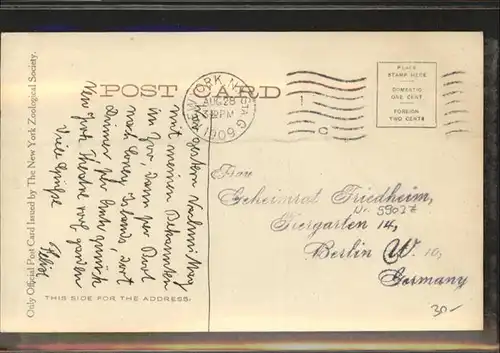 Only Official Post Card Issued by The New York Zoological Society.
POST CARD
NEW YORK, N.Y. STA G
AUG 28
PM
1909
PLACE
STAMP HERE
DOMESTIC
ONE CENT
FOREIGN
TWO CENTS
War gestern Nachmittag
mit meinen Bekannten
im Zoo, dann per Boot
nach Coney Island, dort
Dinner, per
New York
Viele Grüße
Frau
Geheimrat Friedheim,
Tiergarten 14,
Nr. 59037
Berlin W. 10,
Germany
THIS SIDE FOR THE ADDRESS.
30-